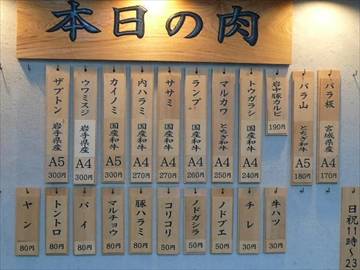 本日の肉
バラ板 宮城県産 A4 170円
バラ山 とちぎ和牛 A5 180円
岩中豚カルビ 190円
トウガラシ 国産和牛 A4 240円
マルカワ とちぎ和牛 A4 250円
ランプ 国産和牛 A4 260円
ササミ 国産和牛 A4 270円
内ハラミ 国産和牛 A4 270円
カイノミ 国産和牛 A5 300円
ウワミスジ 岩手県産 A4 300円
ザブトン 岩手県産 A5 300円
牛ハツ 30円
チレ 30円
ノドブエ 50円
ノドガシラ 50円
コリコリ 50円
豚ハラミ 80円
マルチョウ 80円
パイ 80円
トントロ 80円
ヤン 80円
日祝11時〜23